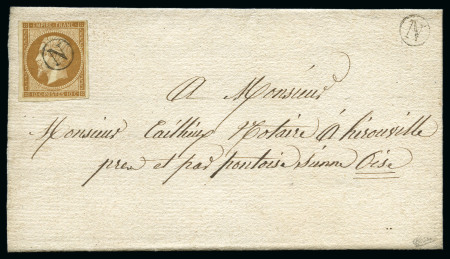 EMPIRE FRANC.
N
10 C. POSTES 10 C.
N
A Monsieur
Monsieur Cailleux Notaire à hérouville
pres et par pontoise seinne Oise